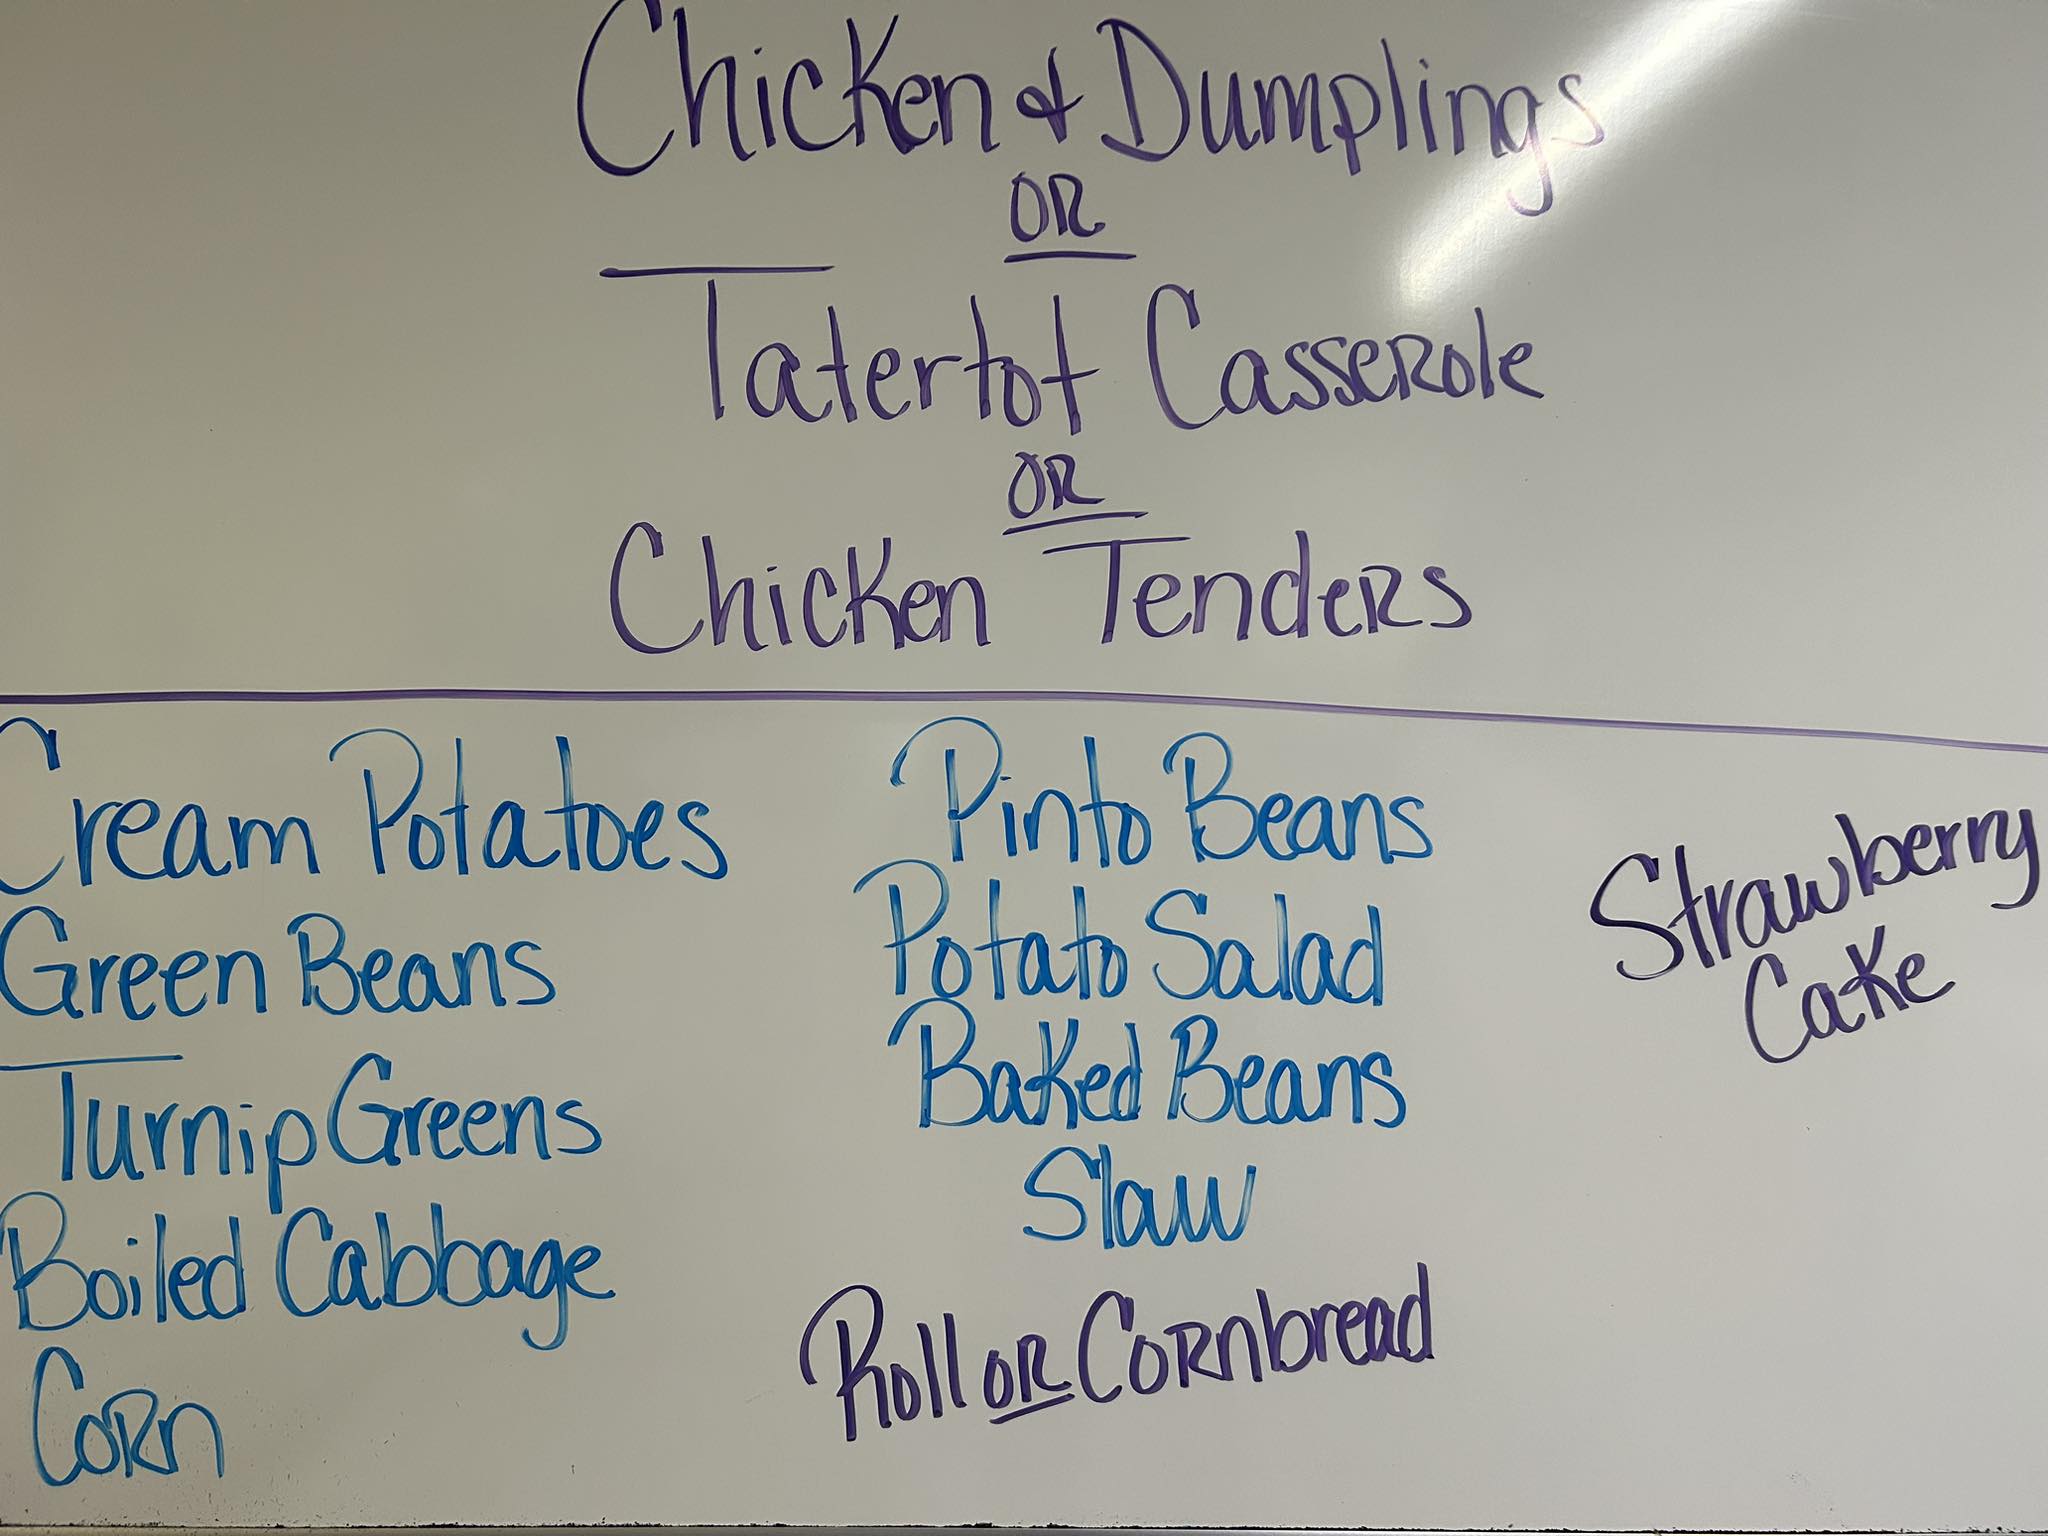 Chicken & Dumplings
OR
Tatertot Casserole
OR
Chicken Tenders
Cream Potatoes
Green Beans
Turnip Greens
Boiled Cabbage
Corn
Pinto Beans
Potato Salad
Baked Beans
Slaw
Roll OR Cornbread
Strawberry
Cake